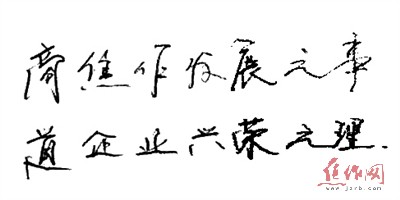 商焦作发展之事
道企业兴荣之理.
焦作网
www.jzrb.com